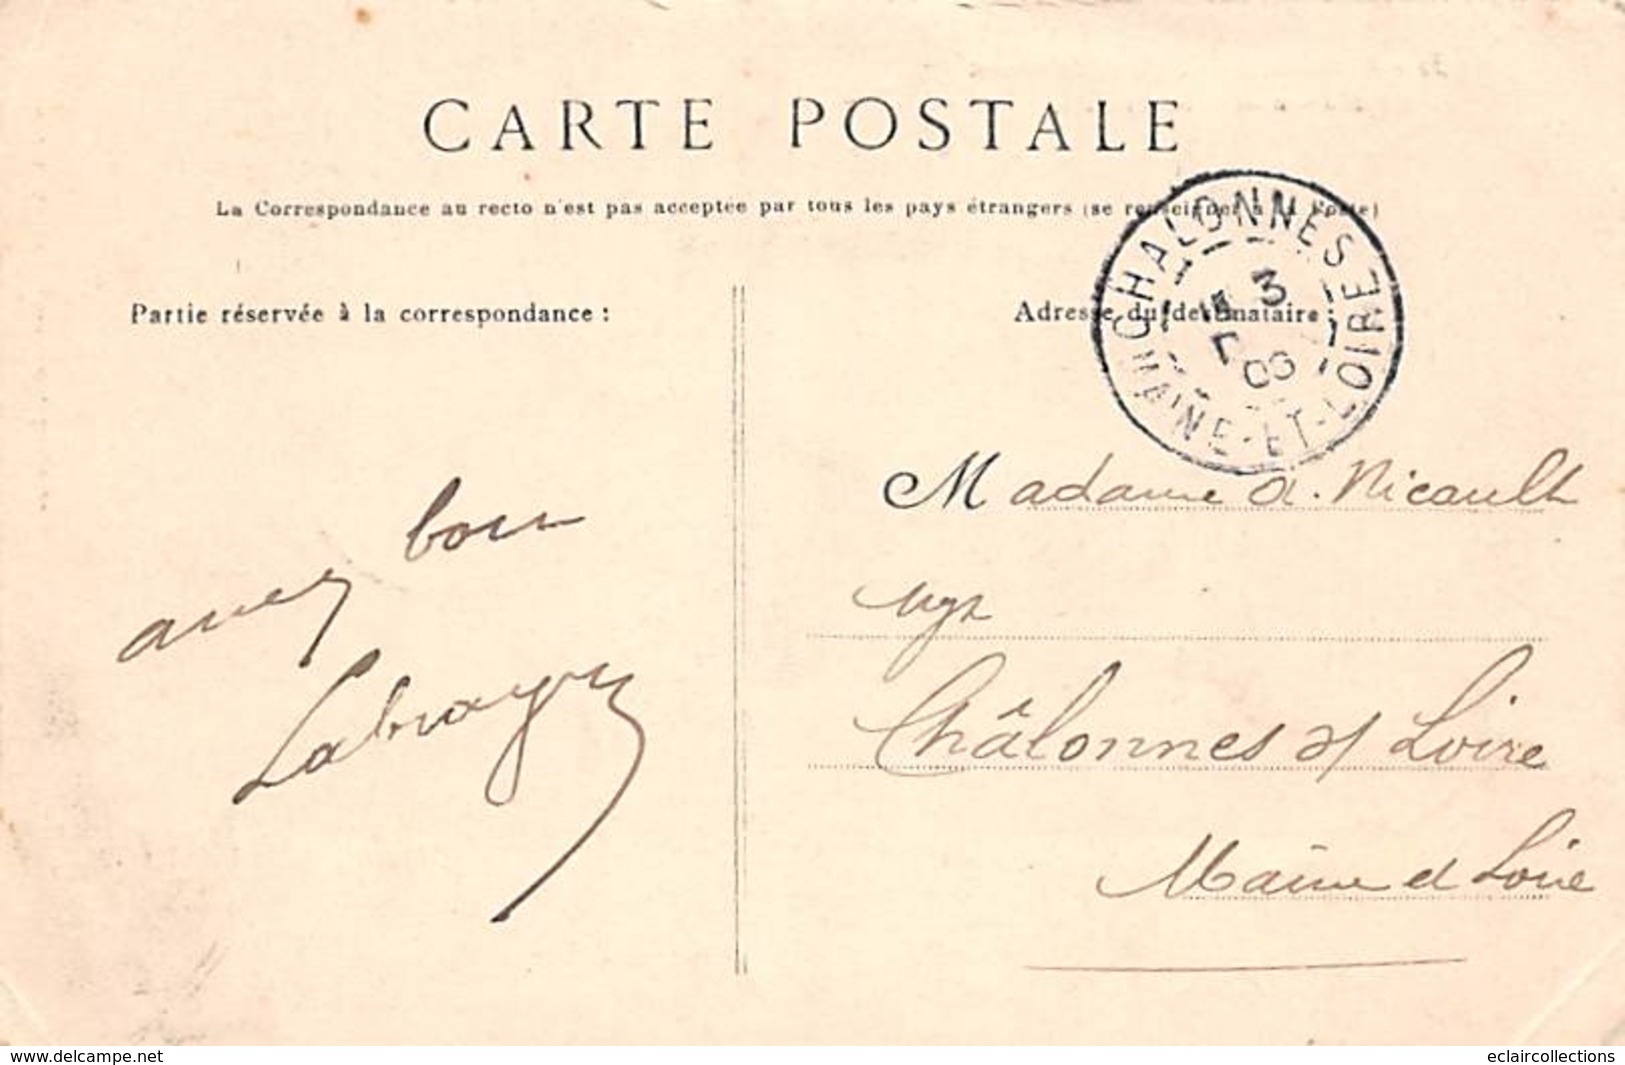 CARTE POSTALE
La Correspondance au recto n'est pas acceptée par tous les pays étrangers (se renseigner à la Poste)
CHALONNES
MAINE-ET-LOIRE
3
Partie réservée à la correspondance :
Adresse du destinataire :
Madame A. Nicault
Châlonnes s/ Loire
Maine et Loire
bon
www.delcampe.net
eclaircollections